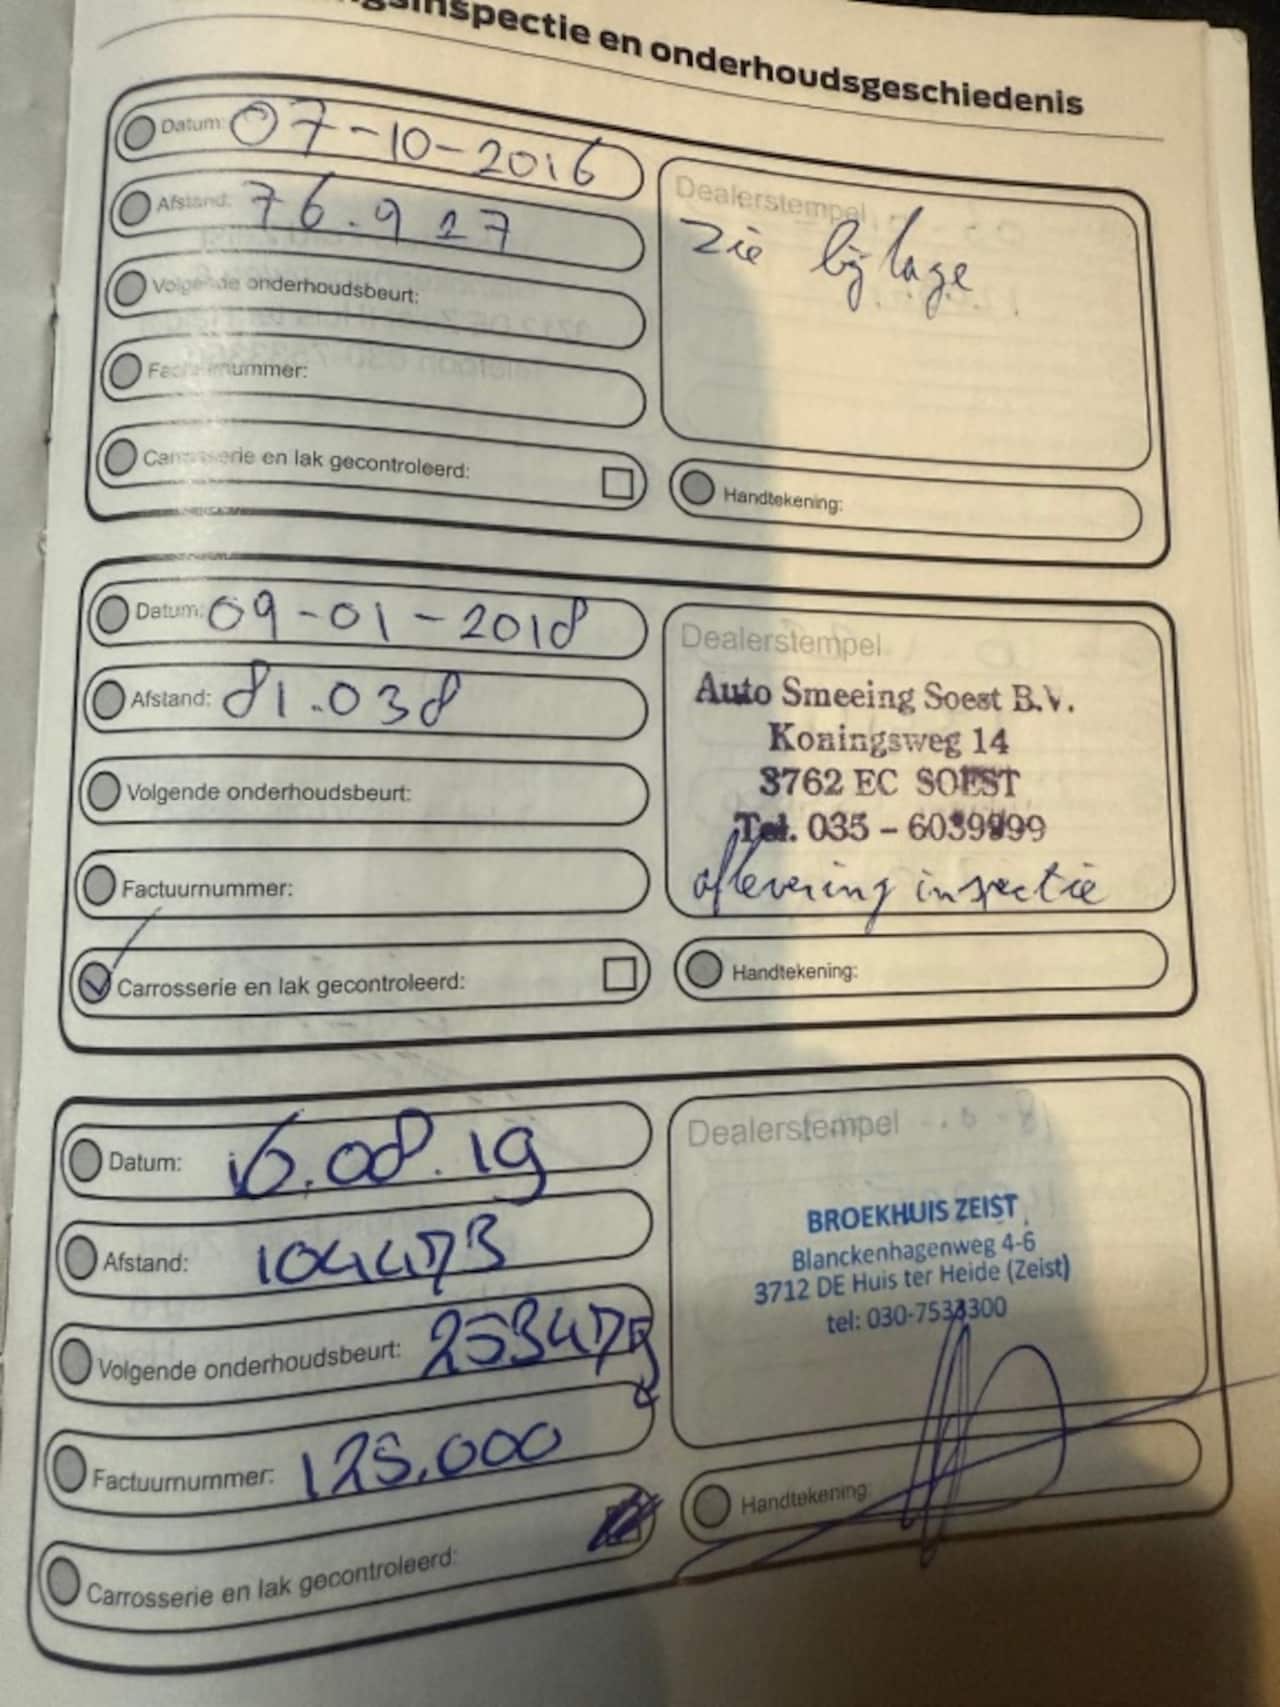 inspectie en onderhoudsgeschiedenis
Datum: 07-10-2016
Afstand: 76.917
Volgende onderhoudsbeurt:
Factuurnummer:
Carrosserie en lak gecontroleerd:
Dealerstempel
Zie bijlage
Handtekening:
Datum: 09-01-2018
Afstand: 81.038
Volgende onderhoudsbeurt:
Factuurnummer:
Carrosserie en lak gecontroleerd:
Dealerstempel
Auto Smeeing Soest B.V.
Koningsweg 14
3762 EC SOEST
Tel. 035 - 6039999
aflevering inspectie
Handtekening:
Datum: 16.08.19
Afstand: 104473
Volgende onderhoudsbeurt:
Factuurnummer: 125.000
Carrosserie en lak gecontroleerd:
Dealerstempel
BROEKHUIS ZEIST
Blanckenhagenweg 4-6
3712 DE Huis ter Heide (Zeist)
tel: 030-7533300
Handtekening: